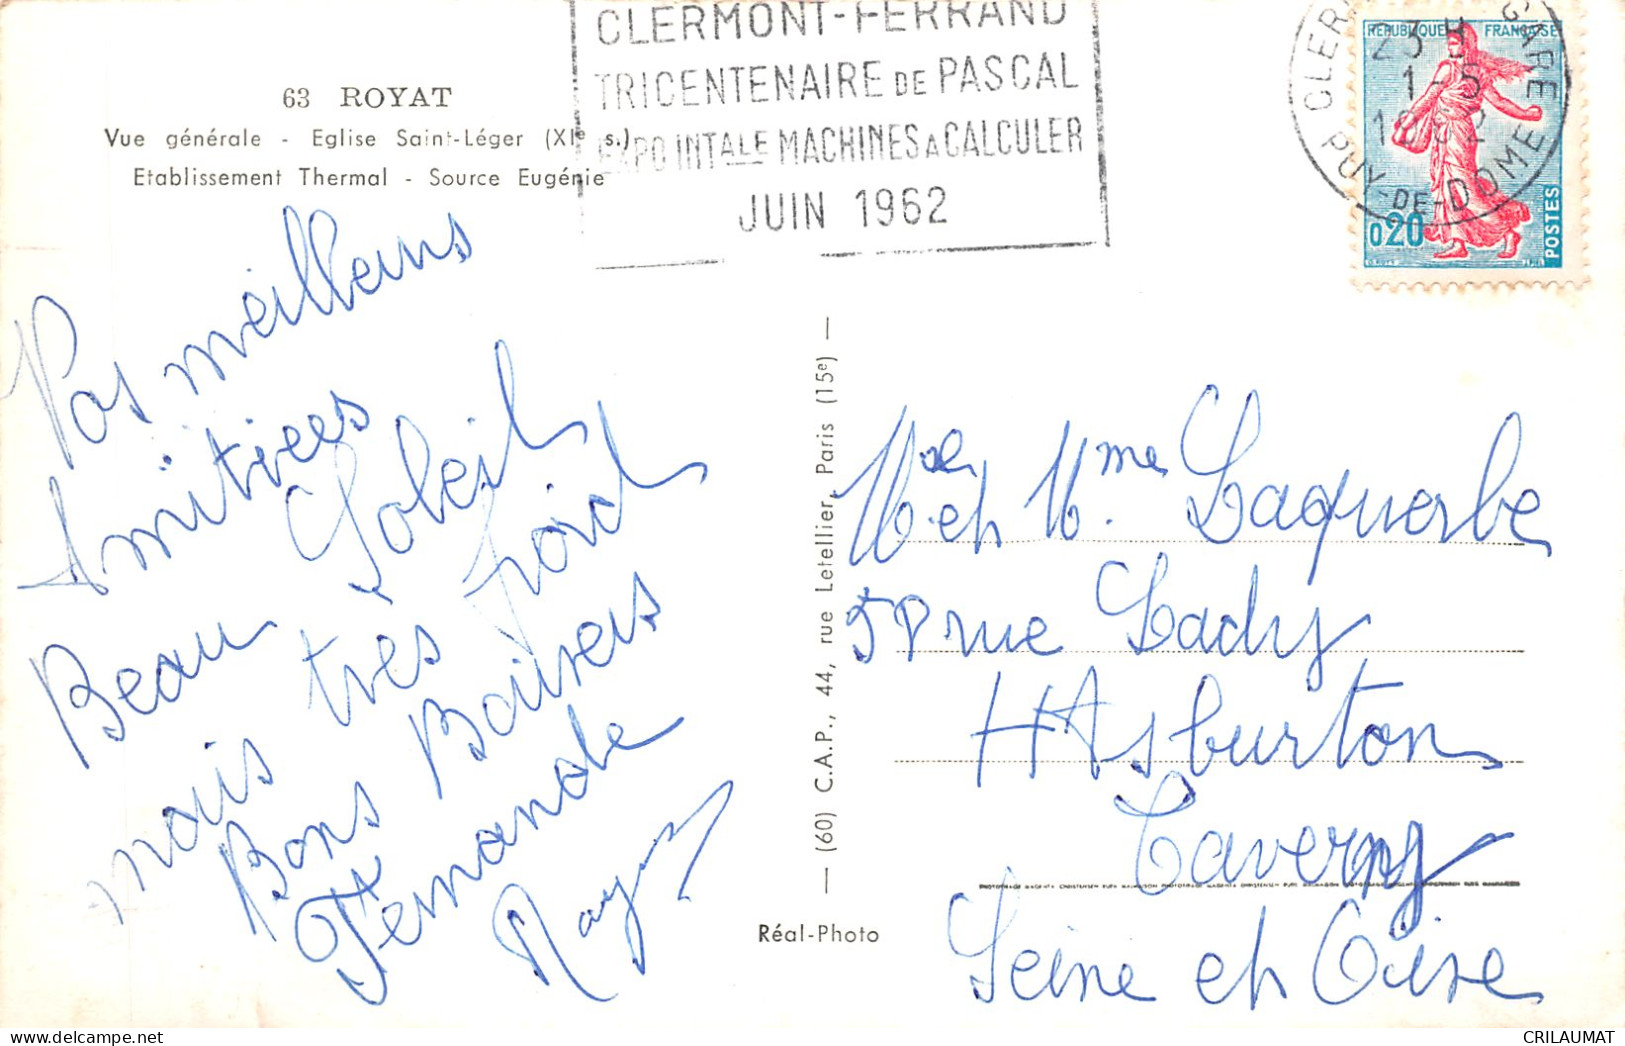 63 ROYAT
Vue générale - Eglise Saint-Léger (XIe s.)
Etablissement Thermal - Source Eugénie
CLERMONT-FERRAND
TRICENTENAIRE DE PASCAL
EXPO INTALE MACHINES A CALCULER
JUIN 1962
GARE
23 H
1 - 5
1962
PUY-DE-DOME
REPUBLIQUE FRANÇAISE
0,20
POSTES
Nos meilleurs
Amitiées
Beau Soleil
mais très froid
Bons Baisers
Fernande
Raym
— (60) C.A.P., 44, rue Letellier, Paris (15e) —
Réal-Photo
Mr et Mme Laquerbe
58 rue Lady
HAsburton
Taverny
Seine et Oise
CRILAUMAT